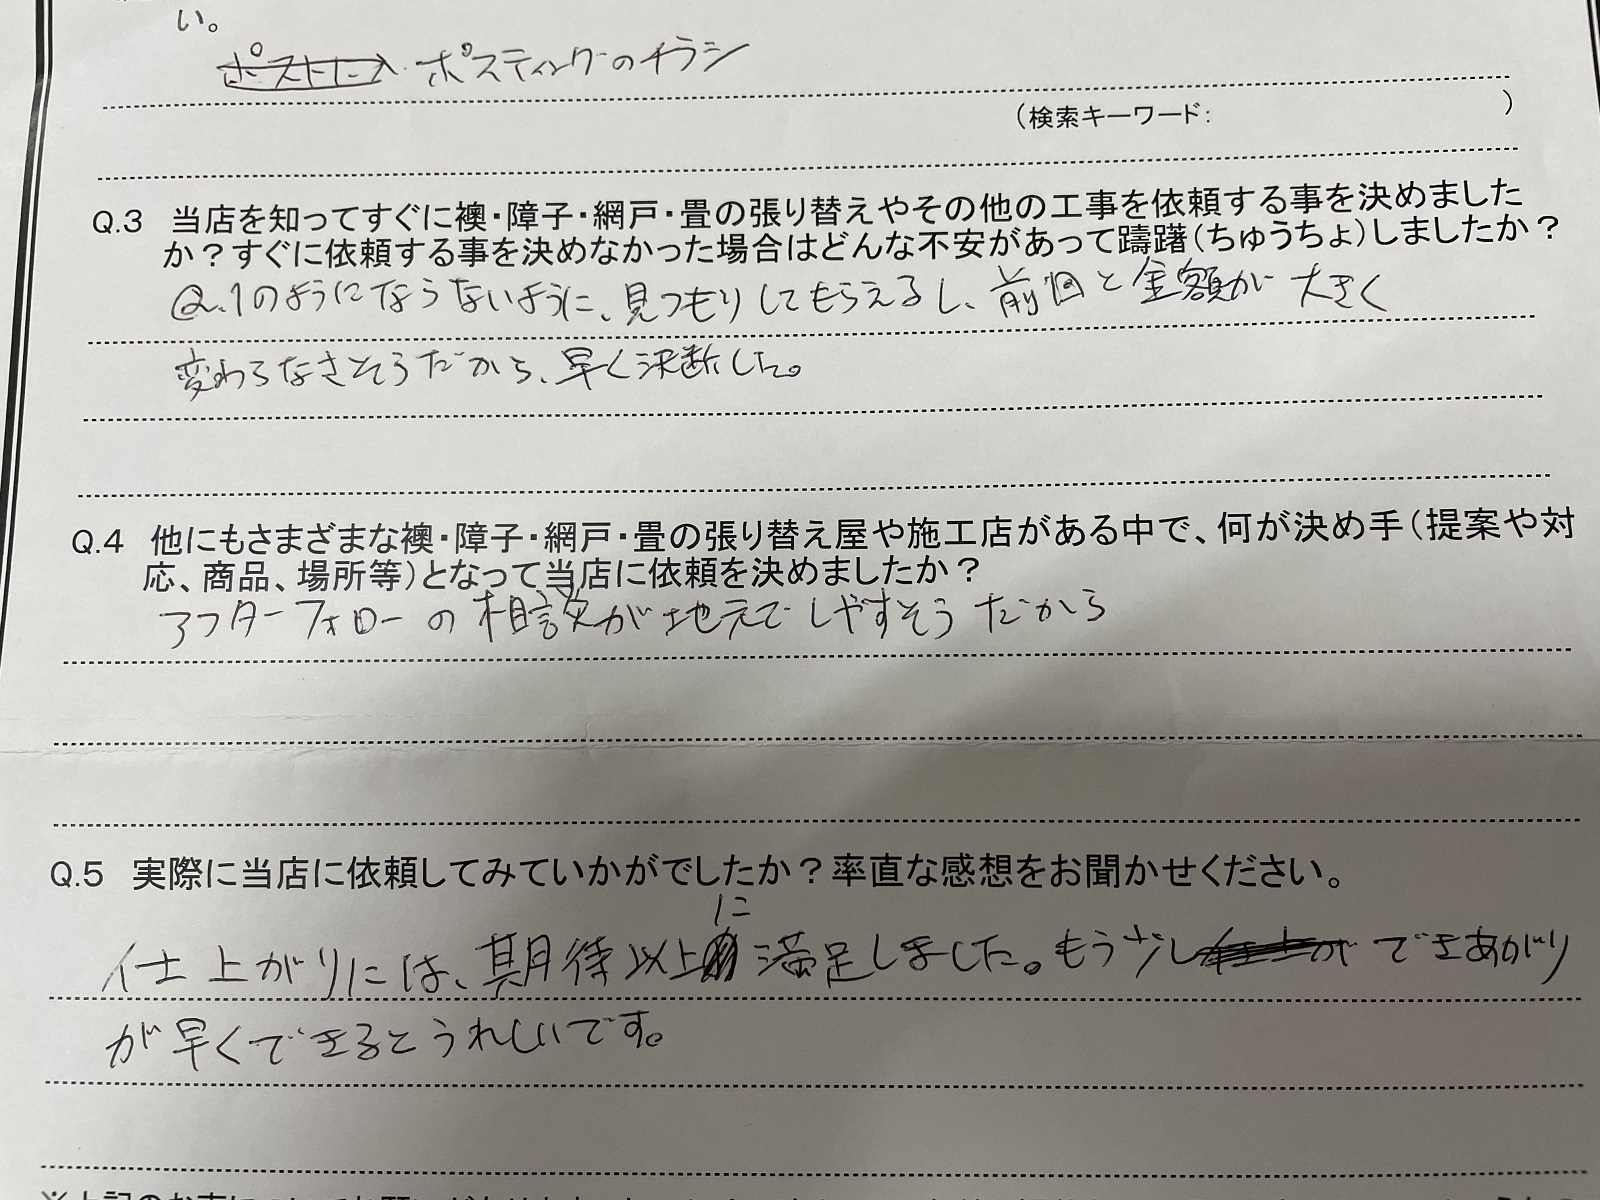 い。
ポスティングのチラシ
（検索キーワード： ）
Q.3 当店を知ってすぐに襖・障子・網戸・畳の張り替えやその他の工事を依頼する事を決めました
か？すぐに依頼する事を決めなかった場合はどんな不安があって躊躇（ちゅうちょ）しましたか？
Q.1のようにならないように、見つもりしてもらえるし、前回と金額が大きく
変わらなさそうだから、早く決断した。
Q.4 他にもさまざまな襖・障子・網戸・畳の張り替え屋や施工店がある中で、何が決め手（提案や対
応、商品、場所等）となって当店に依頼を決めましたか？
アフターフォローの相談が地元でしやすそうだから
Q.5 実際に当店に依頼してみていかがでしたか？率直な感想をお聞かせください。
仕上がりには、期待以上に満足しました。もう少しできあがり
が早くできるとうれしいです。